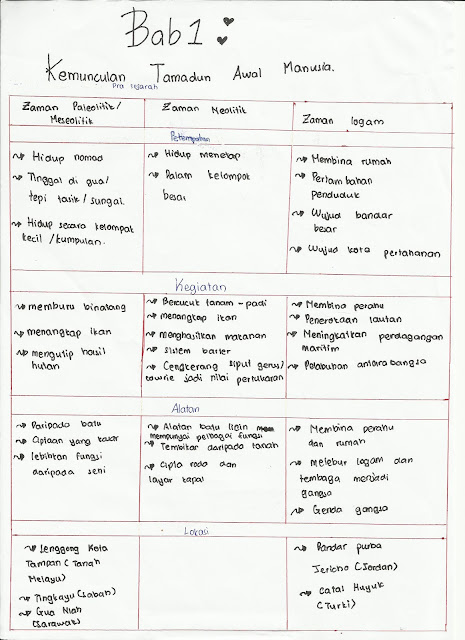 Bab 1 :
Kemunculan Tamadun Awal Manusia.
Pra sejarah
Zaman Paleolitik/
Meseolitik
Zaman Neolitik
Zaman logam
Petempatan
Hidup nomad
Tinggal di gua/
tepi tasik/sungai.
Hidup secara kelompok
kecil/kumpulan.
Hidup menetap
Dalam kelompok
besar
Membina rumah
Pertambahan
penduduk
Wujud bandar
besar
Wujud kota pertahanan
Kegiatan
memburu binatang
menangkap ikan
mengutip hasil
hutan
Bercucuk tanam - padi
menangkap ikan
menghasilkan makanan
sistem barter
Cengkerang siput gerus/
cowrie jadi nilai pertukaran
Membina perahu
Penerokaan lautan
Meningkatkan perdagangan
maritim
Pelabuhan antarabangsa
Alatan
Daripada batu
Ciptaan yang kasar
lebihkan fungsi
daripada seni
Alatan batu licin
mempunyai pelbagai fungsi
Tembikar daripada tanah
Cipta roda dan
layar kapal
Membina perahu
dan rumah
Melebur logam dan
tembaga menjadi
gangsa
Genda gangsa
Lokasi
Lenggong Kota
Tampan (Tanah
Melayu)
Tingkayu (Sabah)
Gua Niah
(Sarawak)
Bandar purba
Jericho (Jordan)
Catal Huyuk
(Turki)